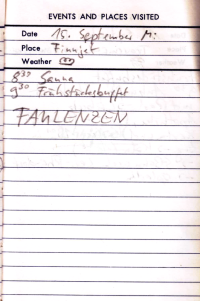 EVENTS AND PLACES VISITED
Date 15. September Mi
Place Finnjet
Weather
8³⁰ Sauna
9³⁰ Frühstücksbuffet
FAULENZEN